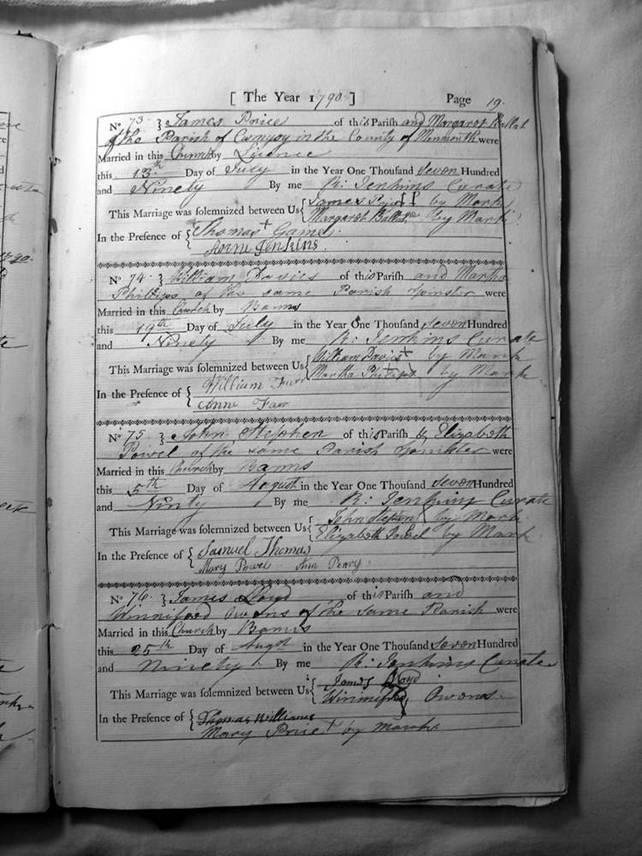 [ The Year 1790 ] Page 19.
No 73. } James Price of this Parish and Margaret
of the Parish of in the County of Monmouth were
Married in this Church by Licence
this 13th Day of July in the Year One Thousand Seven Hundred
and Ninety By me R: Jenkins Curate
This Marriage was solemnized between Us { James Price + by Mark
Margaret by Mark
In the Presence of { Thomas + Games
Anne Jenkins.
No 74. } William Davies of this Parish and Martha
Phillips of the same Parish Spinster were
Married in this Church by Banns
this 19th Day of July in the Year One Thousand Seven Hundred
and Ninety By me R: Jenkins Curate
This Marriage was solemnized between Us { William Davis + by Mark
Martha Phillips + by Mark
In the Presence of { William Farr
Anne Farr
No 75 } John Stephen of this Parish & Elizabeth
Powel of the same Parish Spinster were
Married in this Church by Banns
this 5th Day of August in the Year One Thousand Seven Hundred
and Ninty By me R: Jenkins Curate
This Marriage was solemnized between Us { John Stephen by Mark
Elizabeth Powel by Mark
In the Presence of { Samuel Thomas
Mary Powel Ann
No 76. } James Lloyd of this Parish and
Winniford Owens of the same Parish were
Married in this Church by Banns
this 25th Day of Augst in the Year One Thousand Seven Hundred
and Ninety By me R: Jenkins Curate
This Marriage was solemnized between Us { James Lloyd
Winnifred Owens
In the Presence of { Thomas Williams
Mary Price + by mark